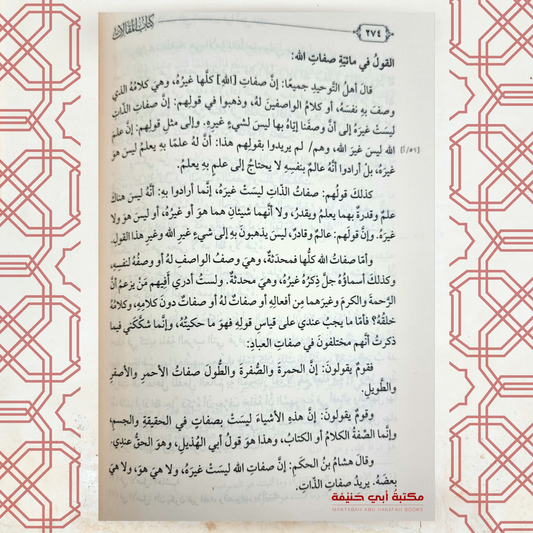 ٢٧٤
كتاب المقالات
القولُ في مائيّةِ صفاتِ الله:
قالَ أهلُ التَّوحيدِ جميعًا: إنَّ صفاتِ [اللهِ] كلَّها غيرُهُ، وهيَ كلامُهُ الذي
وصفَ بهِ نفسَهُ، أو كلامُ الواصفينَ لهُ، وذهبوا في قولِهم: إنَّ صفاتِ الذَّاتِ
ليسَتْ غيرَهُ إلى أنَّ وصفَنا إيَّاهُ بها ليسَ لشيءٍ غيرِهِ. وإلى مثلِ قولِهم: إنَّ علمَ
[٥٦/أ] اللهِ ليسَ غيرَ اللهِ، وهم/ لم يريدوا بقولِهم هذا: أنَّ لهُ علمًا بهِ يعلمُ ليسَ هوَ
غيرَهُ، بلْ أرادوا أنَّهُ عالمٌ بنفسِهِ لا يحتاجُ إلى علمٍ بهِ يعلمُ.
كذلكَ قولُهم: صفاتُ الذَّاتِ ليسَتْ غيرَهُ، إنَّما أرادوا بهِ: أنَّهُ ليسَ هناكَ
علمٌ وقدرةٌ بهما يعلمُ ويقدرُ، ولا أنَّهما شيئانِ هما هوَ أو غيرُهُ، أو ليسَ هوَ ولا
غيرَهُ. وإنَّ قولَهم: عالمٌ وقادرٌ، ليسَ يذهبونَ بهِ إلى شيءٍ غيرِ اللهِ وغيرِ هذا القولِ.
وأمَّا صفاتُ اللهِ كلُّها فمحدَثةٌ، وهيَ وصفُ الواصفِ لهُ أو وصفُهُ لنفسِهِ،
وكذلكَ أسماؤُهُ جلَّ ذِكرُهُ غيرُهُ، وهيَ محدثةٌ. ولستُ أدري أفيهم مَنْ يزعمُ أنَّ
الرَّحمةَ والكرمَ وغيرَهما مِن أفعالِهِ أو صفاتٌ لهُ أو صفاتٌ دونَ كلامِهِ، وكلامُهُ
خلقُهُ؟ فأمَّا ما يجبُ عندي على قياسِ قولِهِ فهوَ ما حكيتُهُ، وإنَّما شكَّكَني فيما
ذكرتُ أنَّهم مختلفونَ في صفاتِ العبادِ:
فقومٌ يقولونَ: إنَّ الحمرةَ والصُّفرةَ والطُّولَ صفاتُ الأحمرِ والأصفرِ
والطَّويلِ.
وقومٌ يقولونَ: إنَّ هذهِ الأشياءَ ليسَتْ بصفاتٍ في الحقيقةِ والجسمِ،
وإنَّما الصِّفةُ الكلامُ أو الكتابُ، وهذا هوَ قولُ أبي الهُذيلِ، وهوَ الحقُّ عندي.
وقالَ هشامُ بنُ الحكمِ: إنَّ صفاتِ اللهِ ليسَتْ غيرَهُ، ولا هيَ هوَ، ولا هيَ
بعضُهُ. يريدُ صفاتِ الذَّاتِ.
مكتبة أبي حنيفة
MAKTABAH ABU HANIFAH BOOKS